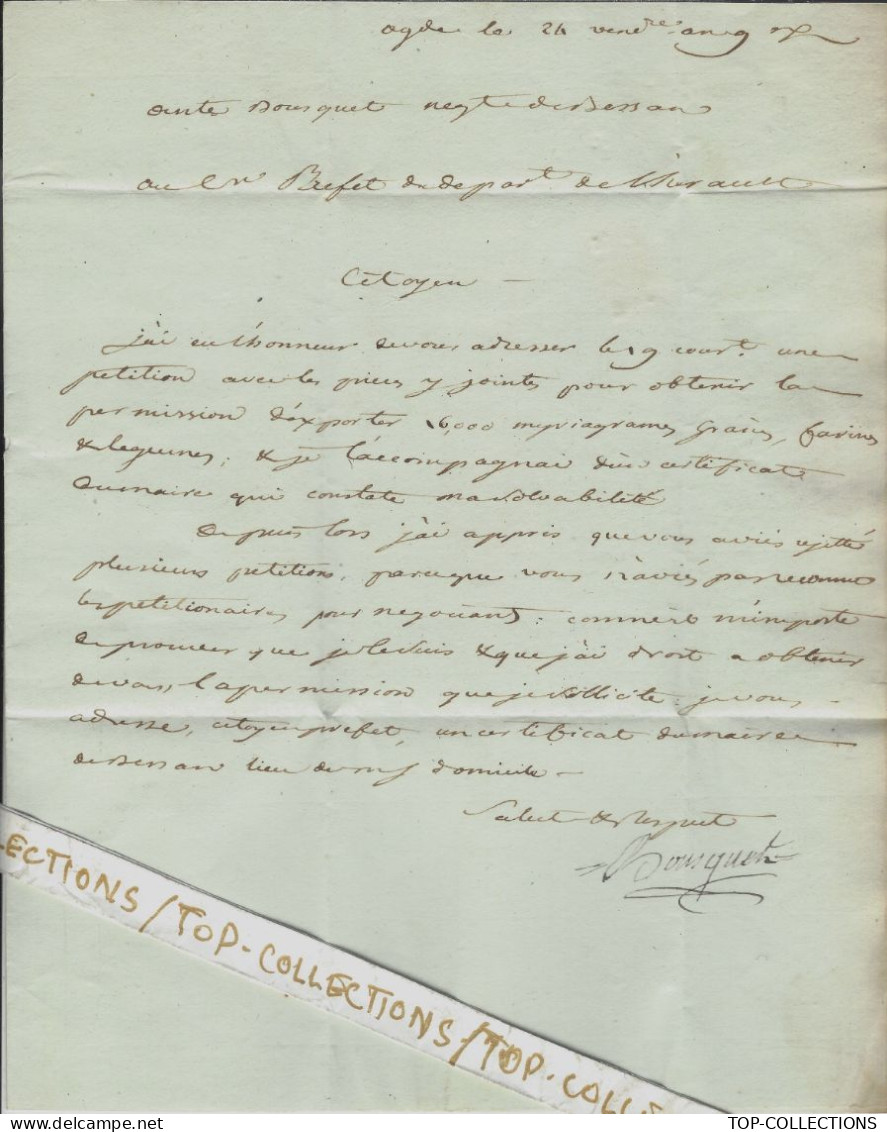 agde le 24 vend.re an 9
Bousquet negt de Bessan
au C.n Prefet du depart.t de l'herault
Citoyen
j'ai eu l'honneur de vous adresser le 9 cour.t une
petition avec les pieces y jointes pour obtenir la
permission d'exporter 6,000 myriagrames grains, farines
& legumes; & je l'accompagnai d'un certificat
du maire qui constate ma solvabilité
depuis lors j'ai appris que vous aviés rejetté
plusieurs petitions, parceque vous n'aviés pas reconnu
les petitionaires pour negotiants; comme il m'importe
de prouver que je le suis & que j'ai droit a obtenir
de vous, la permission que je sollicite; je vous
adresse, citoyen prefet, un certificat du maire
de Bessan lieu de domicile
Salut & Respect
Bousquet
LECTIONS/TOP-COLLECTIONS/TOP-COLLE
TOP-COLLECTIONS